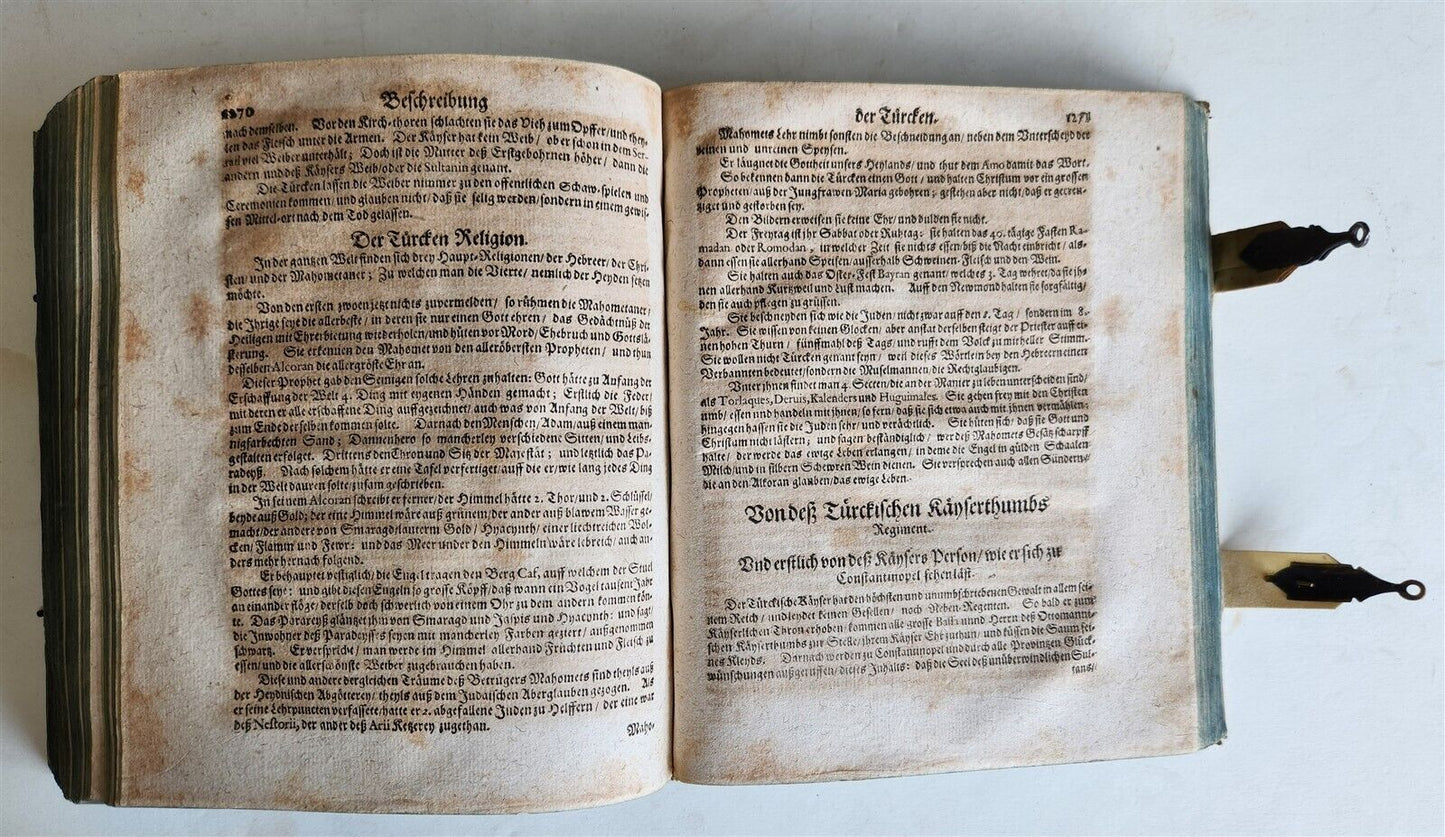 1270
Beschreibung
nach demselben. Vor den Kirch-thoren schlachten sie das Vieh zum Opffer/und they-
len das Fleisch unter die Armen. Der Käyser hat kein Weib/ ob er schon in dem Ser-
rail viel Weiber unterhält; Doch ist die Mutter deß Erstgebohrnen höher/ dann die
andern und deß Käysers Weib/oder die Sultanin genant.
Die Türcken lassen die Weiber nimmer zu den offentlichen Schaw-spielen und
Ceremonien kommen/ und glauben nicht/ daß sie selig werden/sondern in einem gewis-
sen Mittel-ort nach dem Tod gelassen.
Der Türcken Religion.
In der gantzen Welt finden sich drey Haupt-Religionen/der Hebreer/der Chri-
sten/ und der Mahometaner; Zu welchen man die Vierte/ nemlich der Heyden setzen
möchte.
Von den ersten zwoen jetzt nichts zuvermelden/ so rühmen die Mahometaner/
die Ihrige seye die allerbeste/ in deren sie nur einen Gott ehren/ das Gedächtnüß der
Heiligen mit Ehrerbietung wiederholen/und hüten vor Mord/Ehebruch und Gottslä-
sterung. Sie erkennen den Mahomet von den alleröbersten Propheten/ und thun
desselben Alcoran die allergröste Ehr an.
Dieser Prophet gab den Seinigen solche Lehren zuhalten: Gott hätte zu Anfang der
Erschaffung der Welt 4. Ding mit eygenen Händen gemacht; Erstlich die Feder/
mit deren er alle erschaffene Ding auffgezeichnet/ auch was von Anfang der Welt/biß
zum Ende derselben kommen solte. Darnach den Menschen/Adam/auß einem man-
nigfarbechten Sand; Dannenhero so mancherley verschiedene Sitten/ und Leibs-
gestalten erfolget. Drittens den Thron und Sitz der Majestät; und letzlich das Pa-
radeyß. Nach solchem hätte er eine Tafel verfertiget/auff die er/wie lang jedes Ding
in der Welt dauren solte/zusam geschrieben.
In seinem Alcoran schreibt er ferner/der Himmel hätte 2. Thor/und 2. Schlüssel/
beyde auß Gold; der eine Himmel wäre auß grünem/der ander auß blawem Wasser ge-
macht/der andere von Smaragd/lauterm Gold/ Hyacynth/ einer liechtreichen Wol-
cken/ Flamm und Fewr: und das Meer under den Himmeln wäre lebreich/ auch an-
ders mehr hernach folgend.
Er behauptet vestiglich/die Engel tragen den Berg Caf, auff welchem der Stuel
Gottes seye: und gibt diesen Engeln so grosse Köpff/daß wann ein Vogel tausent Jahr
an einander flöge/derselb doch schwerlich von einem Ohr zu dem andern kommen kön-
te. Das Paradeyß gläntzet jhm von Smaragd und Jaspis und Hyacynth: und sagt/
die Inwohner deß Paradeyses seyen mit mancherley Farben geziert/ außgenommen
schwartz. Er verspricht/ man werde im Himmel allerhand Früchten und Fleisch zu
essen/und die allerschönste Weiber zugebrauchen haben.
Diese und andere dergleichen Träume deß Betrügers Mahomets sind theyls auß
der Heydnischen Abgötterey/ theyls auß dem Judaischen Aberglauben gezogen. Als
er seine Lehrpuncten verfassete/hatte er 2. abgefallene Juden zu Helffern/ der eine war
deß Nestorii, der ander deß Arii Ketzerey zugethan.
Maho-
der Türcken.
1271
Mahomets Lehr nimbt sonsten die Beschneidung an/ neben dem Unterscheyd der
reinen und unreinen Speysen.
Er läugnet die Gottheit unsers Heylands/ und thut dem Amo damit das Wort.
So bekennen dann die Türcken einen Gott/ und halten Christum vor ein grossen
Propheten/ auß der Jungfrawen Maria gebohren; gestehen aber nicht/ daß er gecreu-
tziget und gestorben sey.
Den Bildern erweisen sie keine Ehr/ und dulden sie nicht.
Der Freytag ist ihr Sabbat oder Ruhtag: sie halten das 40. tägige Fasten Ra-
madan oder Romodan, in welcher Zeit sie nichts essen/ biß die Nacht einbricht/ als-
dann essen sie allerhand Speisen/ ausserhalb Schweinen-Fleisch und den Wein.
Sie halten auch das Oster-Fest Bayran genant/ welches 3. Tag wehret/da sie jh-
nen allerhand Kurtzweil und Lust machen. Auff den Newmond halten sie sorgfältig/
den sie auch pflegen zu grüssen.
Sie beschneyden sich wie die Juden/nicht zwar auff den 8. Tag/ sondern im 8.
Jahr. Sie wissen von keinen Glocken/ aber anstat derselben steigt der Priester auff ei-
nen hohen Thurn/ fünffmahl deß Tags/ und rufft dem Volck zu mit heller Stimm.
Sie wollen nicht Türcken genant seyn/ weil dieses Wörtlein bey den Hebreern einen
Verbannten bedeutet/sondern die Muselmannen/die Rechtglaubigen.
Unter ihnen findet man 4. Secten/die an der Manier zu leben unterscheiden sind/
als Torlaques, Deruis, Kalenders und Huguimales. Sie gehen frey mit den Christen
umb/ essen und handeln mit jhnen/ so fern/ daß sie sich etwa auch mit jhnen vermählen:
hingegen hassen sie die Juden sehr/ und verächtlich. Sie hüten sich/ daß sie Gott und
Christum nicht lästern; und sagen beständiglich/ wer deß Mahomets Gesätz scharpff
halte/ der werde das ewige Leben erlangen/ in deme die Engel in gülden Schaalen
Milch/und in silbern Schewren Wein dienen. Sie versprechen auch allen Sündern/
die an den Alkoran glauben/das ewige Leben.
Von deß Türckischen Käyserthumbs
Regiment.
Und erstlich von deß Käysers Person/ wie er sich zu
Constantinopel sehen läst.
Der Türckische Käyser hat den höchsten und unumbschriebenen Gewalt in allem sei-
nem Reich/ und leydet keinen Gesellen/ noch Neben-Regenten. So bald er zum
Käyserlichen Thron erhoben/ kommen alle grosse Bassa unnd Herrn deß Ottomanni-
schen Käyserthumbs zur Stelle/ ihrem Käyser Ehr zuthun/ und küssen die Saum sei-
nes Kleyds. Darnach werden zu Constantinopel und durch alle Provintzen Glück-
wünschungen außgeruffen/ dieses Inhalts: daß die Seel deß unüberwindlichen Sul-
tans/